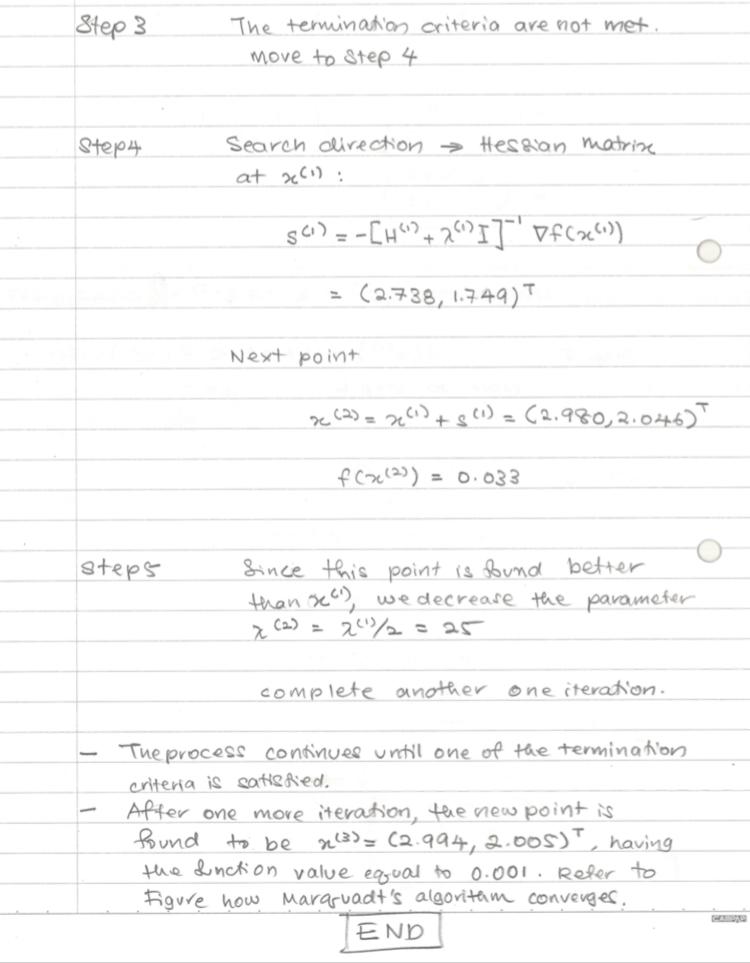 Step 3 The termination criteria are not met.
move to Step 4
Step4 Search direction → Hessian matrix
at x⁽¹⁾ :
s⁽¹⁾ = -[H⁽¹⁾ + λ⁽¹⁾I]⁻¹ ∇f(x⁽¹⁾)
= (2.738, 1.749)ᵀ
Next point
x⁽²⁾ = x⁽¹⁾ + s⁽¹⁾ = (2.980, 2.046)ᵀ
f(x⁽²⁾) = 0.033
Step5 Since this point is found better
than x⁽¹⁾, we decrease the parameter
λ⁽²⁾ = λ⁽¹⁾/2 = 25
complete another one iteration.
– The process continues until one of the termination
criteria is satisfied.
– After one more iteration, the new point is
found to be x⁽³⁾ = (2.994, 2.005)ᵀ, having
the function value equal to 0.001. Refer to
Figure how Marqruadt's algorithm converges.
CAMPAP
END